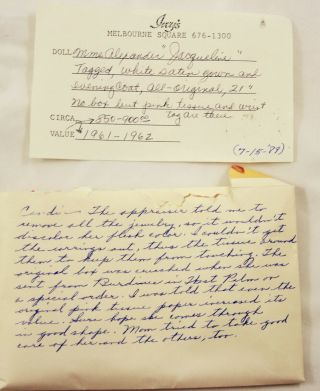 Ivry's
MELBOURNE SQUARE 676-1300
DOLL Mme Alexander "Jacqueline"
Tagged, white satin gown and
evening coat, all-original, 21"
no box but pink tissue and wrist
tag are there
CIRCA 850-900.00
VALUE 1961-1962
(7-15-'89)
The appraiser told me to
remove all the jewelry, so it wouldn't
discolor her flesh color. I couldn't get
the earrings out, thus the tissue around
them to keep them from touching. The
original box was crushed when she was
sent from Burdines in West Palm on
a special order. I was told that even the
original pink tissue paper increased its
value. Sure hope she comes through
in good shape. Mom tried to take good
care of her and the others, too.